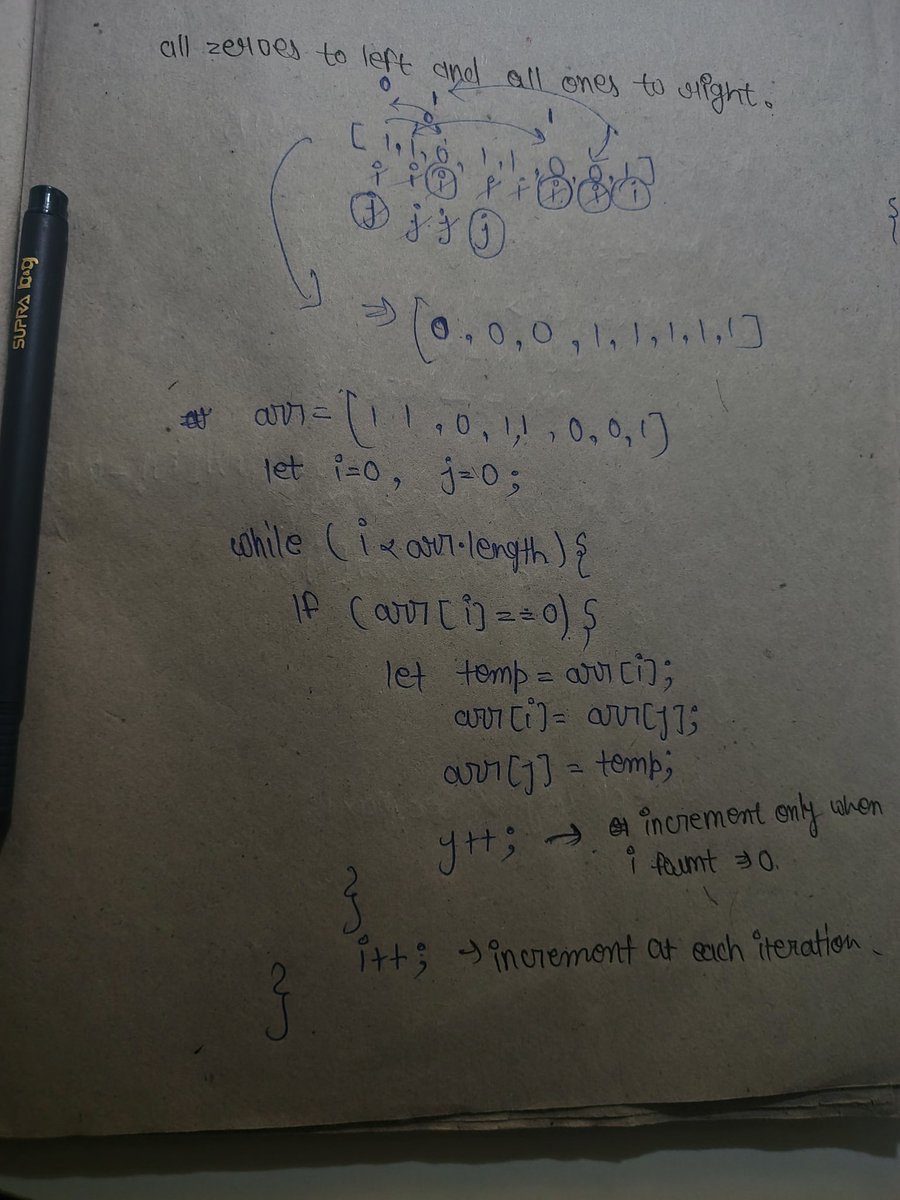 all zeroes to left and all ones to right.
0 1 0 1
[ 1, 1, 0, 1, 1, 0, 0, 1 ]
i i i i i i i i
j j j j
⇒ [0, 0, 0, 1, 1, 1, 1, 1]
arr = [1 1, 0, 1, 1, 0, 0, 1]
let i=0, j=0;
while (i < arr.length) {
if (arr[i] === 0) {
let temp = arr[i];
arr[i] = arr[j];
arr[j] = temp;
y++; → increment only when
i ⇒ 0.
}
i++; → increment at each iteration.
}
{
SUPRA b&g